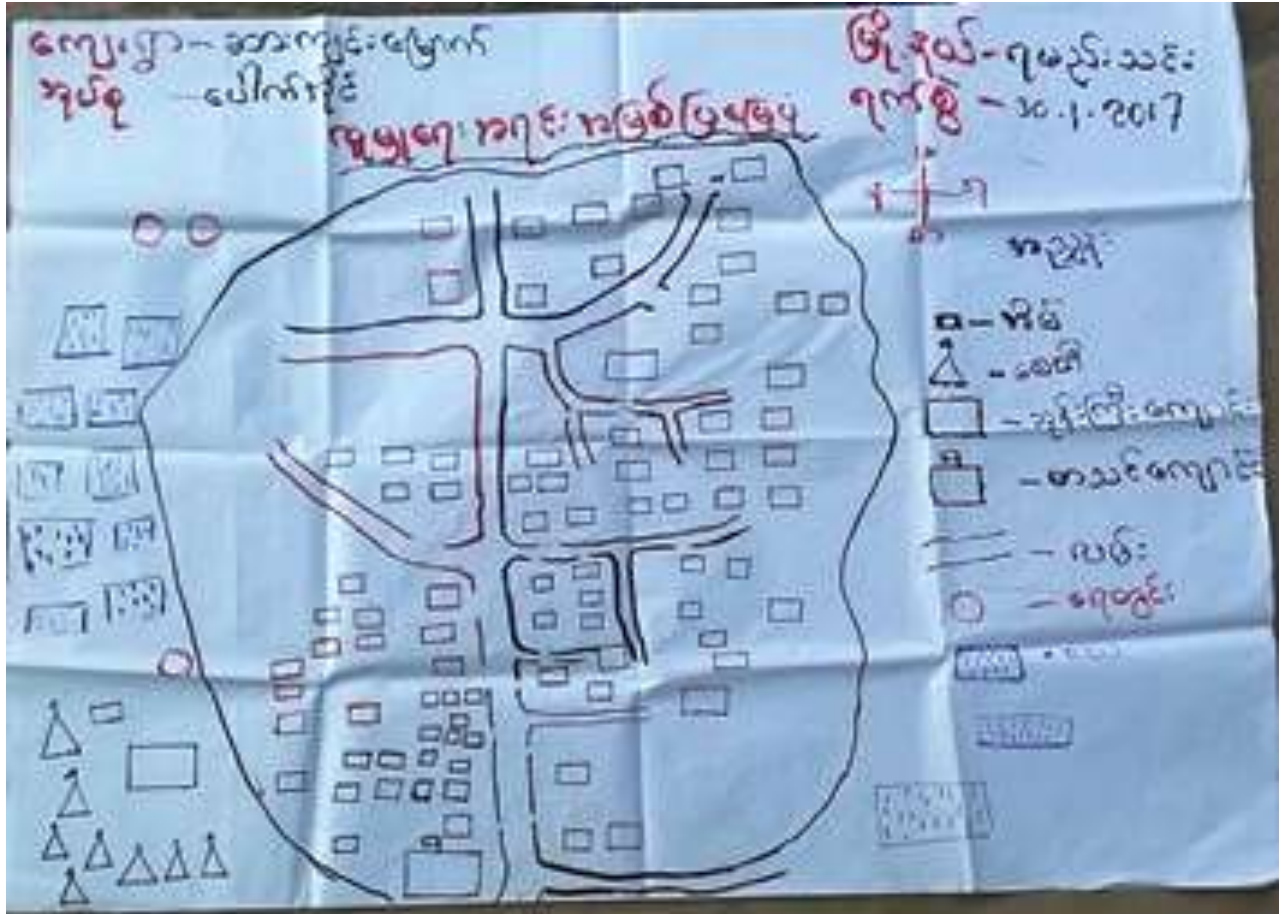 ကျေးရွာ - ဆားကျင်းမြောက်
အုပ်စု - ပေါက်အိုင်
မြို့နယ် - ရမည်းသင်း
ရက်စွဲ - 30.1.2017
လူမှုရေးအရင်းအမြစ်ပြမြေပုံ
အညွှန်း
- အိမ်
- စေတီ
- ဘုန်းကြီးကျောင်း
- စာသင်ကျောင်း
- လမ်း
- ရေတွင်း